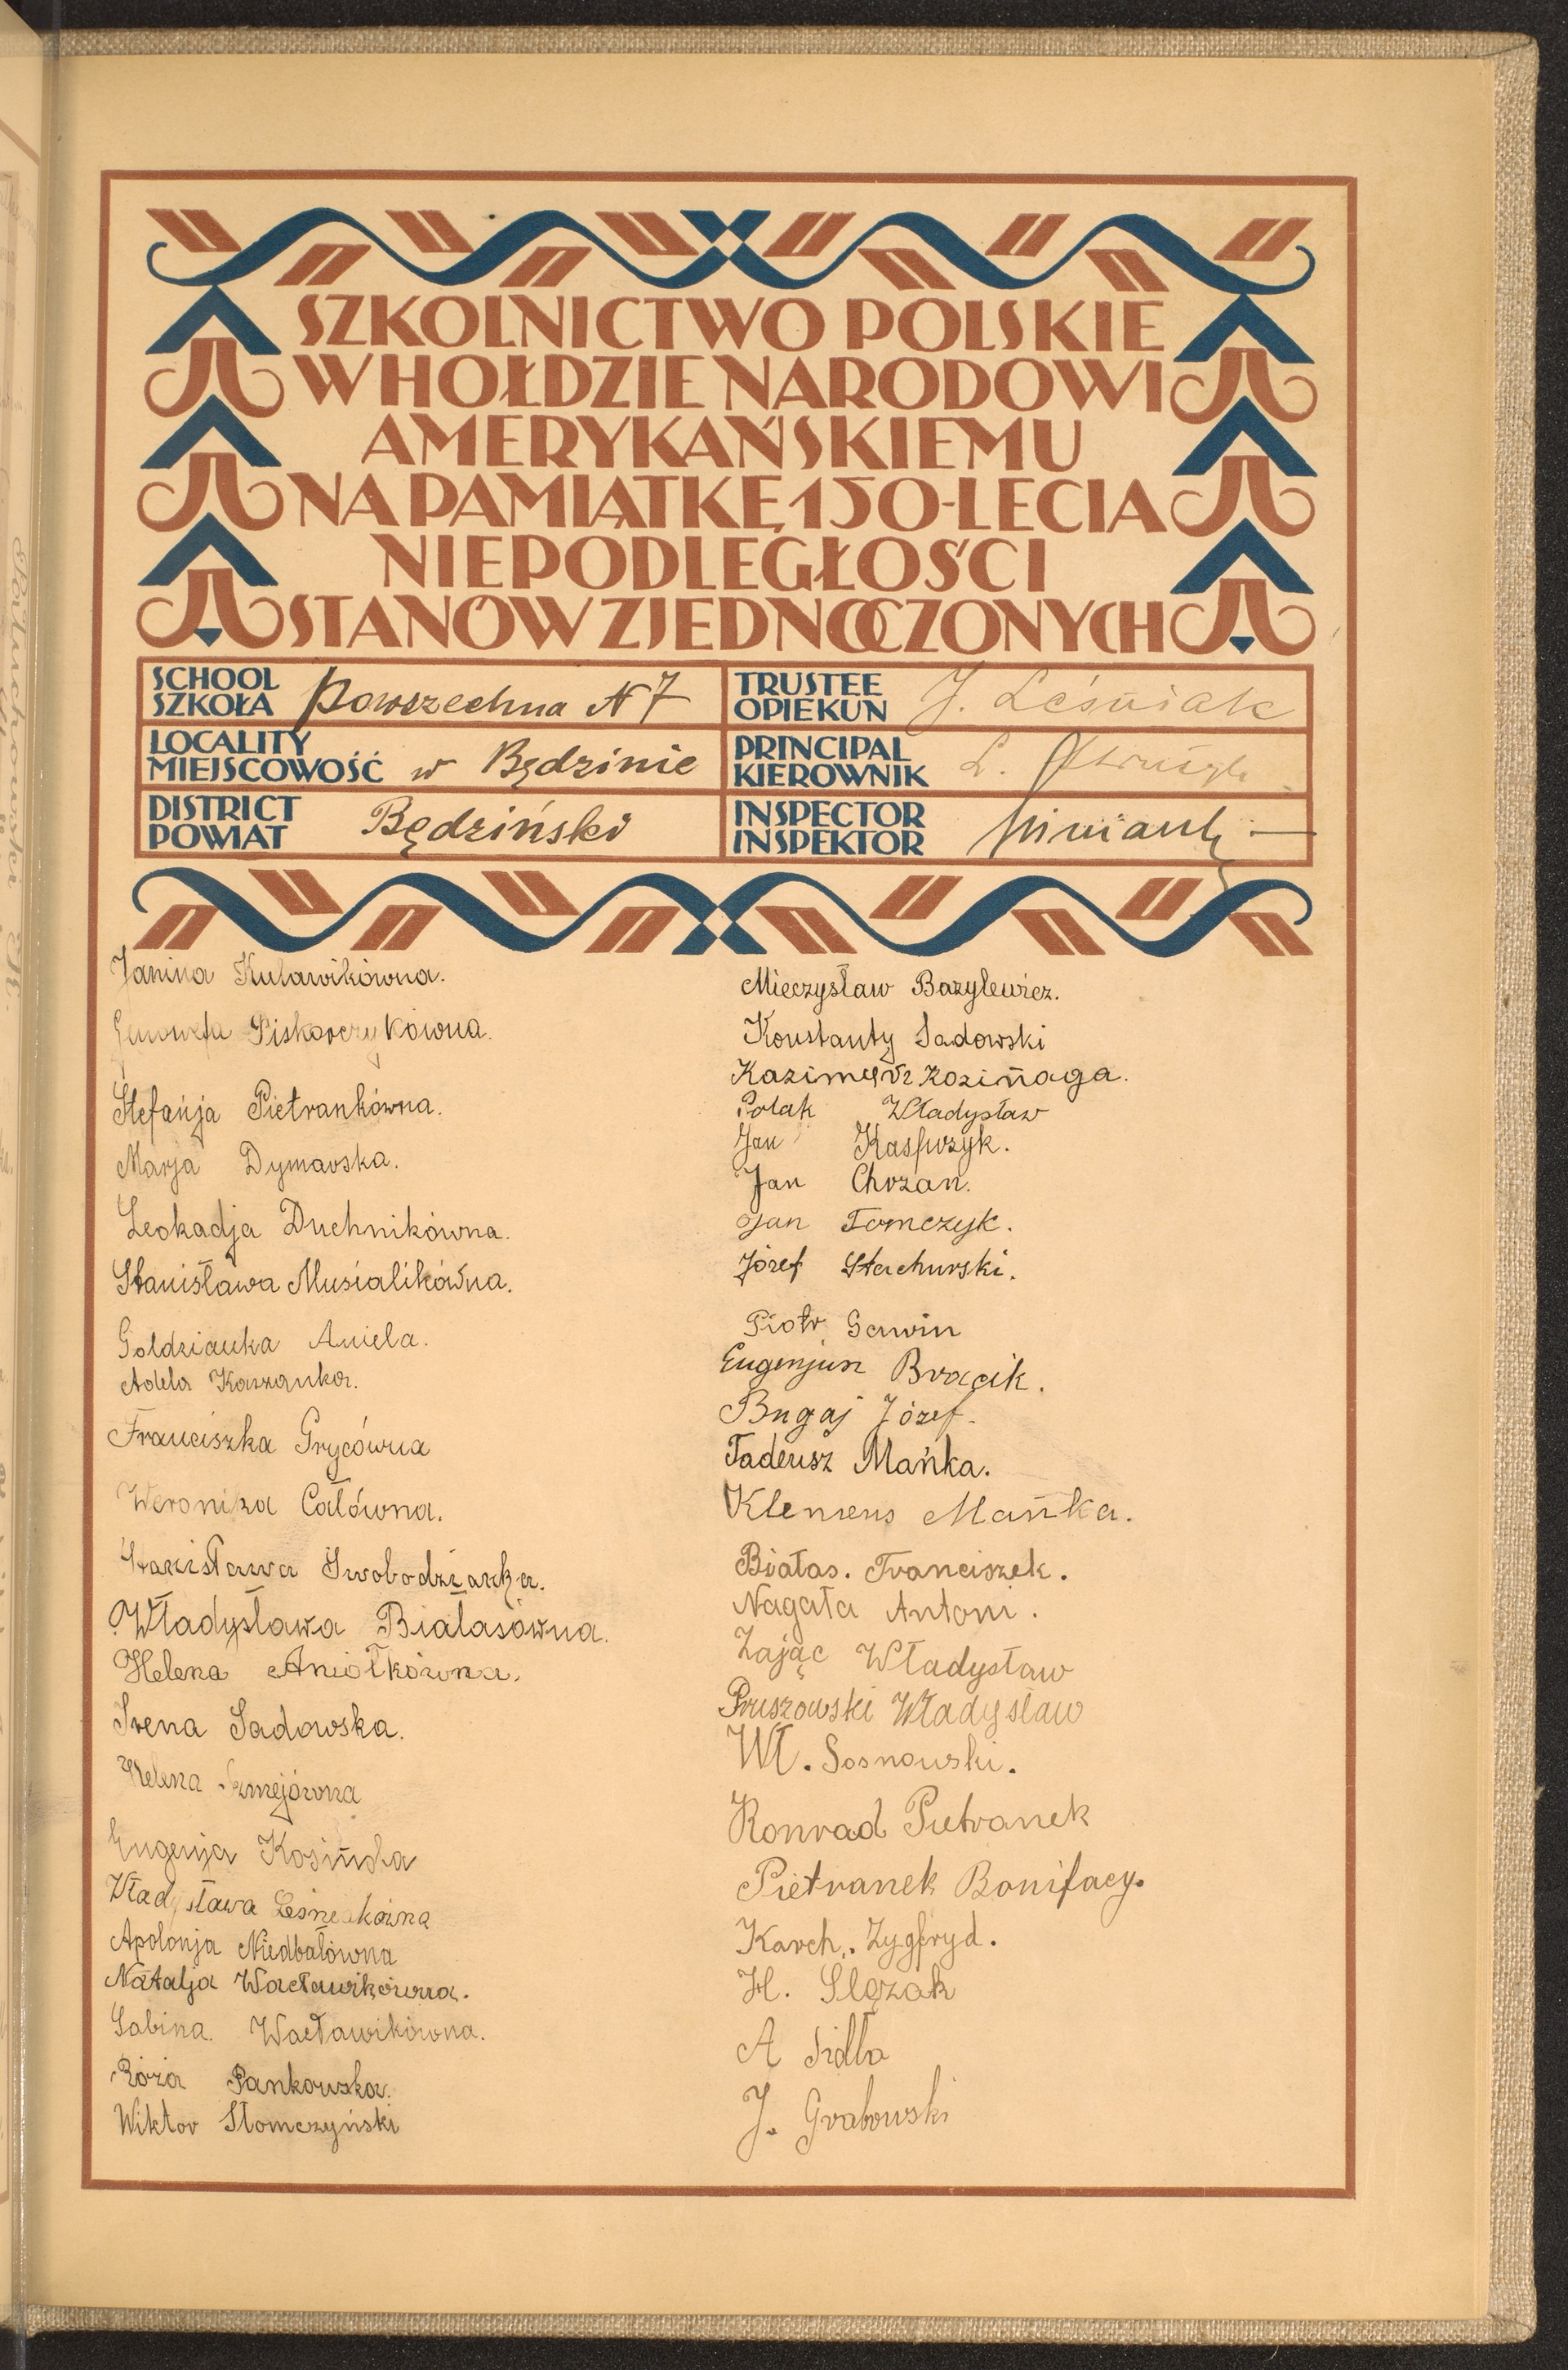 SZKOLNICTWO POLSKIE
W HOŁDZIE NARODOWI
AMERYKAŃSKIEMU
NA PAMIĄTKĘ 150-LECIA
NIEPODLEGŁOŚCI
STANÓW ZJEDNOCZONYCH
SCHOOL
SZKOŁA
Powszechna N 7
TRUSTEE
OPIEKUN
J. Leśniak
LOCALITY
MIEJSCOWOŚĆ
w Będzinie
PRINCIPAL
KIEROWNIK
L.
DISTRICT
POWIAT
Będziński
INSPECTOR
INSPEKTOR
Janina Kulawikówna.
Genowefa Piskorczykówna.
Stefańja Pietrankówna.
Marja Dymarska.
Leokadja Duchnikówna.
Stanisława Musialikówna.
Goldzianka Aniela.
Adela Kaszanka.
Franciszka Grycówna
Weronika Całówna.
Stanisława Swobodzianka.
Władysława Białasówna.
Helena Aniołkówna.
Irena Sadowska.
Helena Szmejówna
Eugenja Kosińska
Władysława Leśniakówna
Apolonja Niedbałówna
Natalja Wacławikówna.
Sabina. Wacławikówna.
Róża Pankowska.
Wiktor Słomczyński
Mieczysław Bazylewicz.
Konstanty Sadowski
Kazimierz Kozińaga.
Polak Władysław
Jan Kasprzyk.
Jan Chrzan.
Jan Tomczyk.
Józef Stachurski.
Piotr Gerwin
Eugenjusz Bracik.
Bugaj Józef.
Tadeusz Mańka.
Klemens Mańka.
Białas. Franciszek.
Nagała Antoni.
Zając Władysław
Pruszowski Władysław
Wł. Sosnowski.
Konrad Pietranek
Pietranek Bonifacy.
Karch. Zygfryd.
H. Ślęzak
A Sidło
J. Grabowski